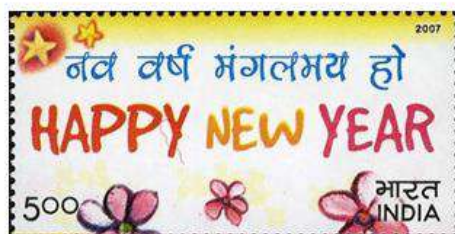 2007
नव वर्ष मंगलमय हो
HAPPY NEW YEAR
500 भारत
INDIA